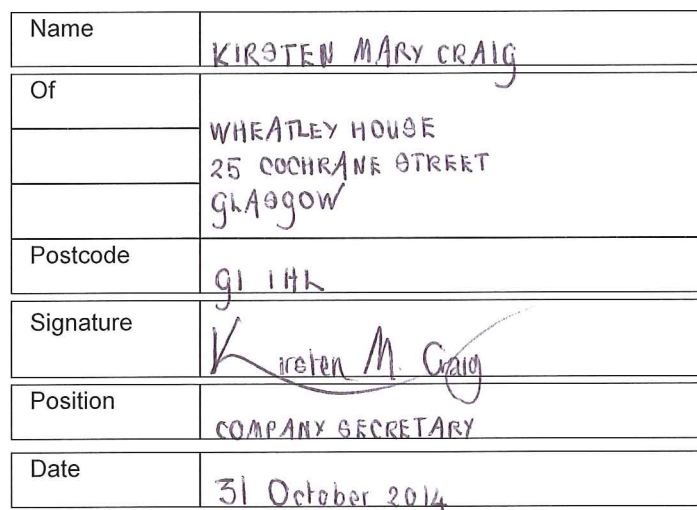 Name KIRSTEN MARY CRAIG
Of
WHEATLEY HOUSE
25 COCHRANE STREET
GLASGOW
Postcode G1 1HL
Signature Kirsten M. Craig
Position COMPANY SECRETARY
Date 31 October 2014